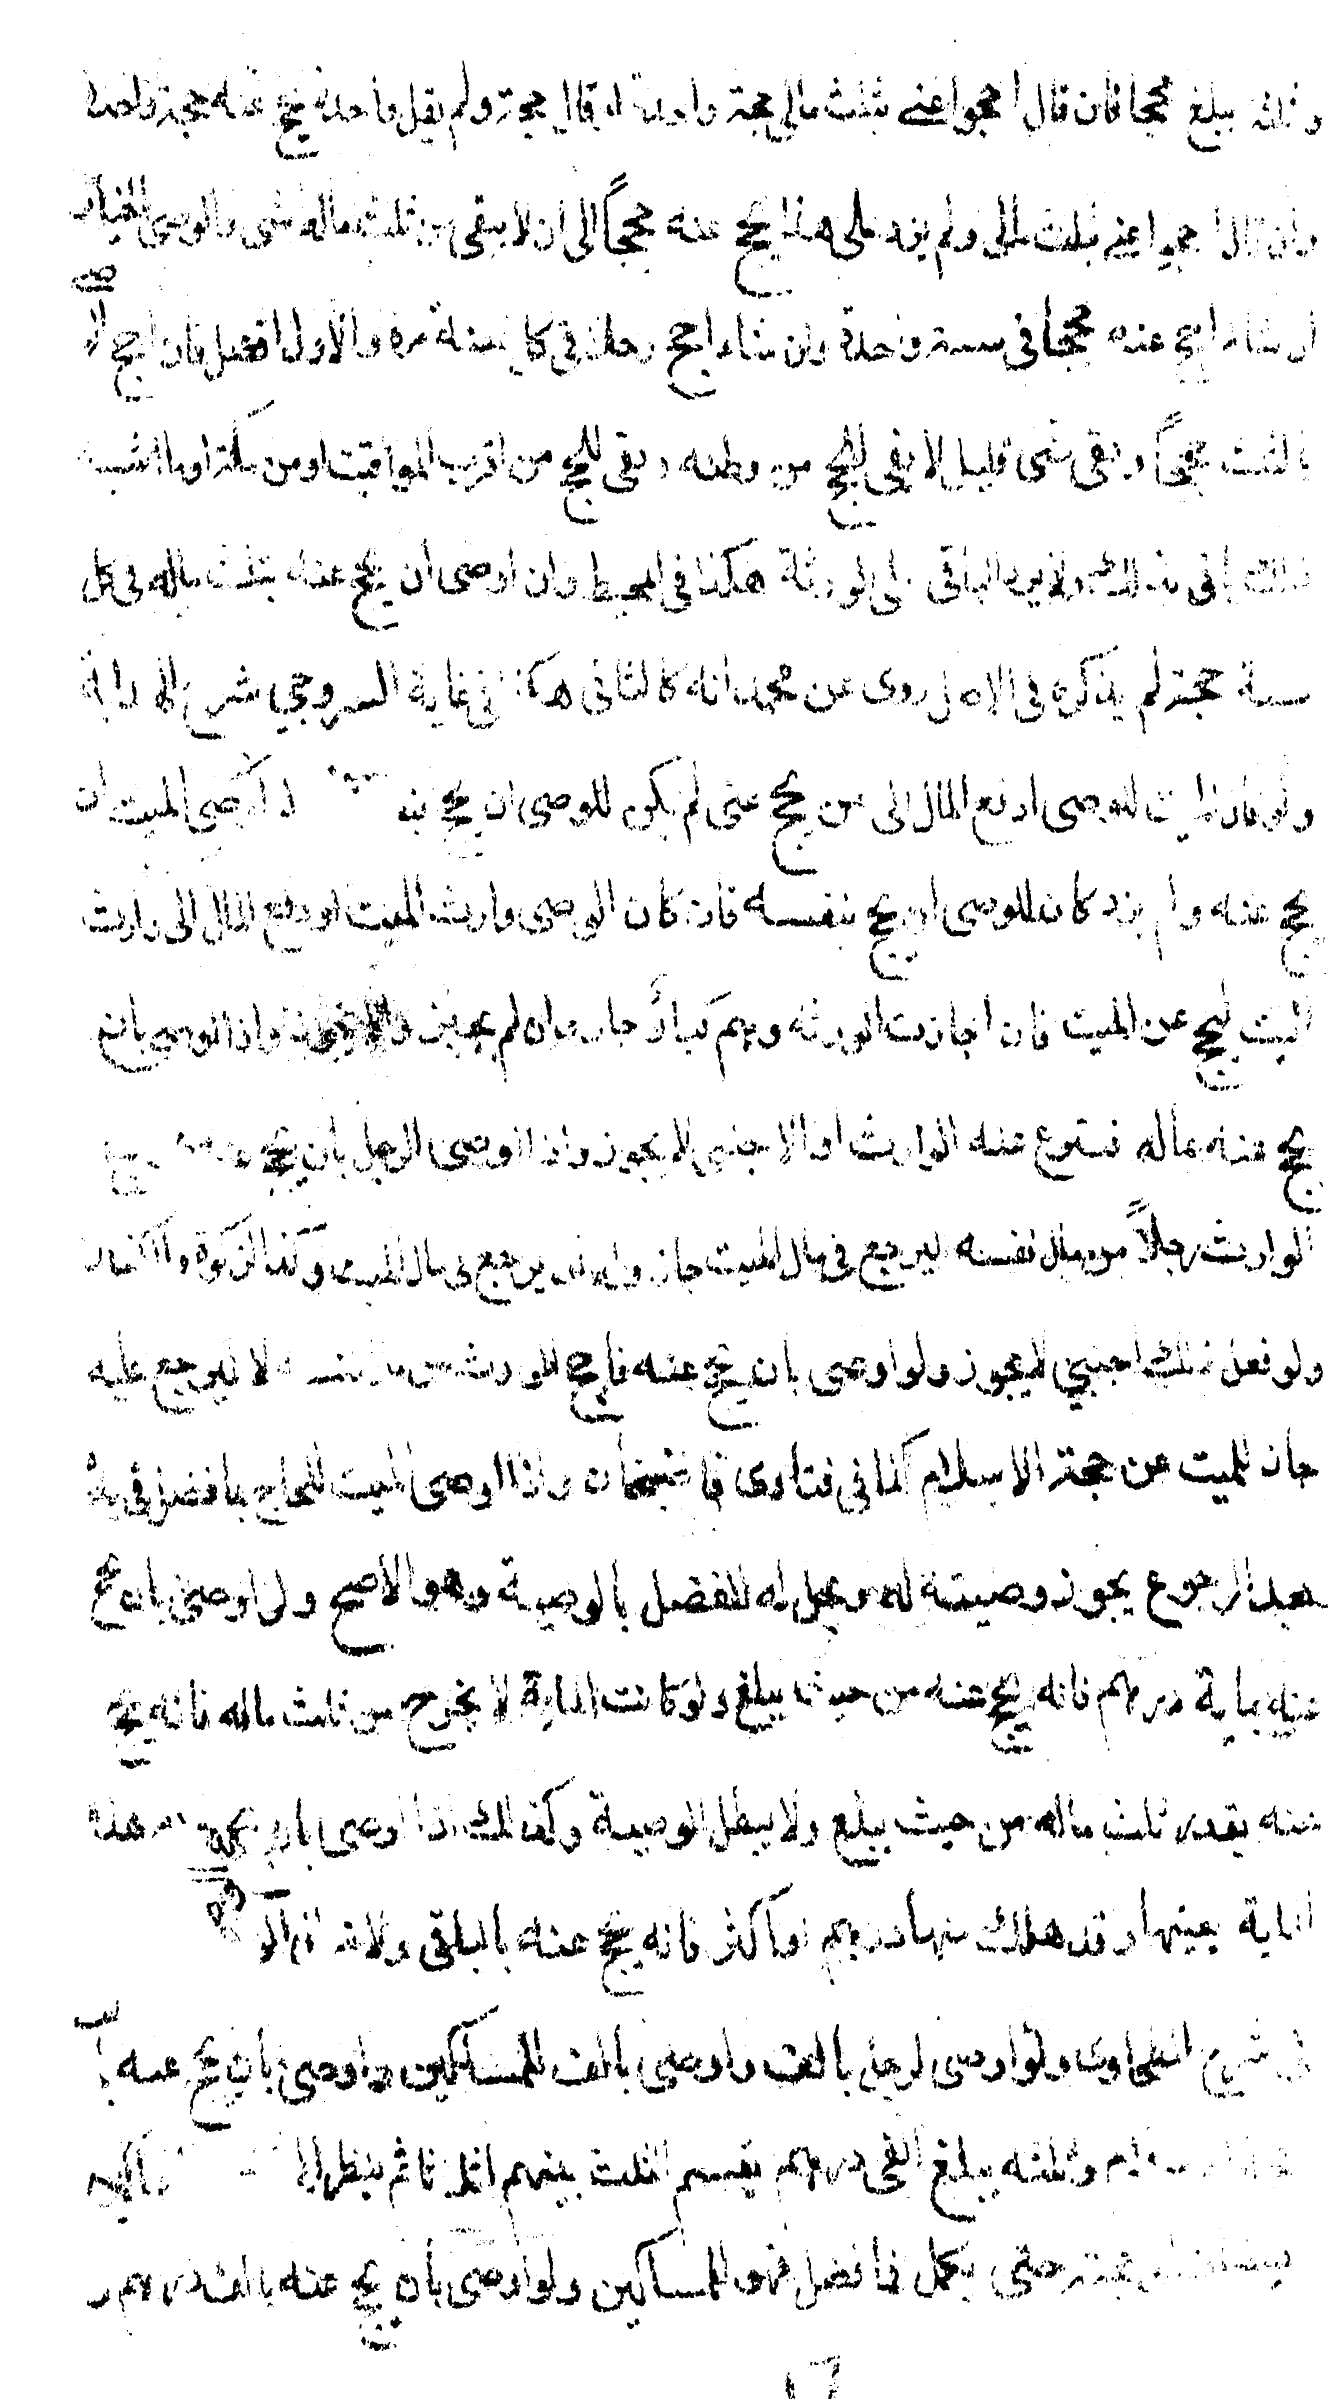 وثلثه يبلغ حججا فان قال احجوا عني بثلث مالي حجة واحدة او قال حجة ولم يقل واحدة يحج عنه حجة واحدة
وان قال احجوا عني بثلث مالي ولم يزد على هذا يحج عنه حججاً الى ان لا يبقى من ثلث ماله شى والوصى بالخيار
ان شاء احج عنه حججا في سنة واحدة وان شاء احج رجلا في كل سنة مرة والاول افضل فان احج
بالثلث حججاً وبقى شى قليل لا يفى للحج من وطنه ويفى للحج من اقرب المواقيت او من مكة او ما اشبه
ذلك ياتى بذلك ولا يرد الباقى الى الورثة هكذا في المحيط وان اوصى ان يحج عنه بثلث ماله في كل
سنة حجة لم يذكره في الاصل روى عن محمد انه كالثاني هكذا في غاية السروجي شرح الهداية
ولو قال الميت للوصى ادفع المال الى من يحج عنى لم يكن للوصى ان يحج بنفسه اوصى الميت ان
يحج عنه ولم يزد كان للوصى ان يحج بنفسه فان كان الوصى وارث الميت او دفع المال الى وارث
الميت ليحج عن الميت فان اجازت الورثة وهم كبار جاز وان لم يجيزوا واذا اوصى بان
يحج عنه بماله فتبرع عنه الوارث او الاجنبي لا يجوز واذا اوصى الرجل بان يحج عنه
الوارث رجلاً من مال نفسه ليرجع في مال الميت جاز وله ان يرجع في مال الميت وكذا الزكوة والكفارة
ولو فعل ذلك اجنبي لا يجوز ولو اوصى بان يحج عنه فاحج الوارث من مال نفسه لا ليرجع عليه
جاز للميت عن حجة الاسلام كذا في فتاوى قاضيخان واذا اوصى الميت للحاج بما فضل في يده
بعد الرجوع يجوز وصيته له ويحل له الفضل بالوصية وهو الاصح ولو اوصى بان يحج
عنه بماية درهم فانه يحج عنه من حيث يبلغ ولو كانت الماية لا يخرج من ثلث ماله فانه يحج
عنه بقدر ثلث ماله من حيث يبلغ ولا يبطل الوصية وكذلك اذا اوصى بان يحج هذه
الماية بعينها وقد هلك منها درهم او اكثر فانه يحج عنه بالباقى ولا
في شرح الطحاوى ولو اوصى لرجل بالف واوصى بالف للمساكين واوصى بان يحج عنه
وثلثه يبلغ الفى درهم يقسم الثلث بينهم اثلاثا ثم ينظر الى
حتى يكمل فما فضل فهو للمساكين ولو اوصى بان يحج عنه بالف درهم و